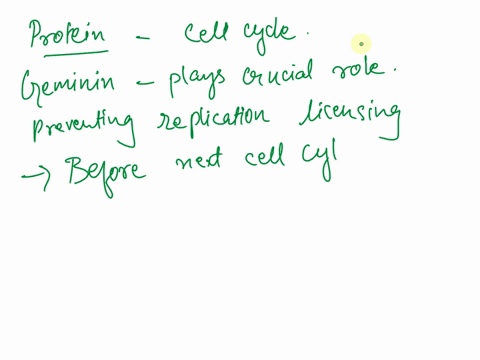 Protein - cell cycle.
Geminin - plays crucial role.
preventing replication licensing
→ Before next cell cyl